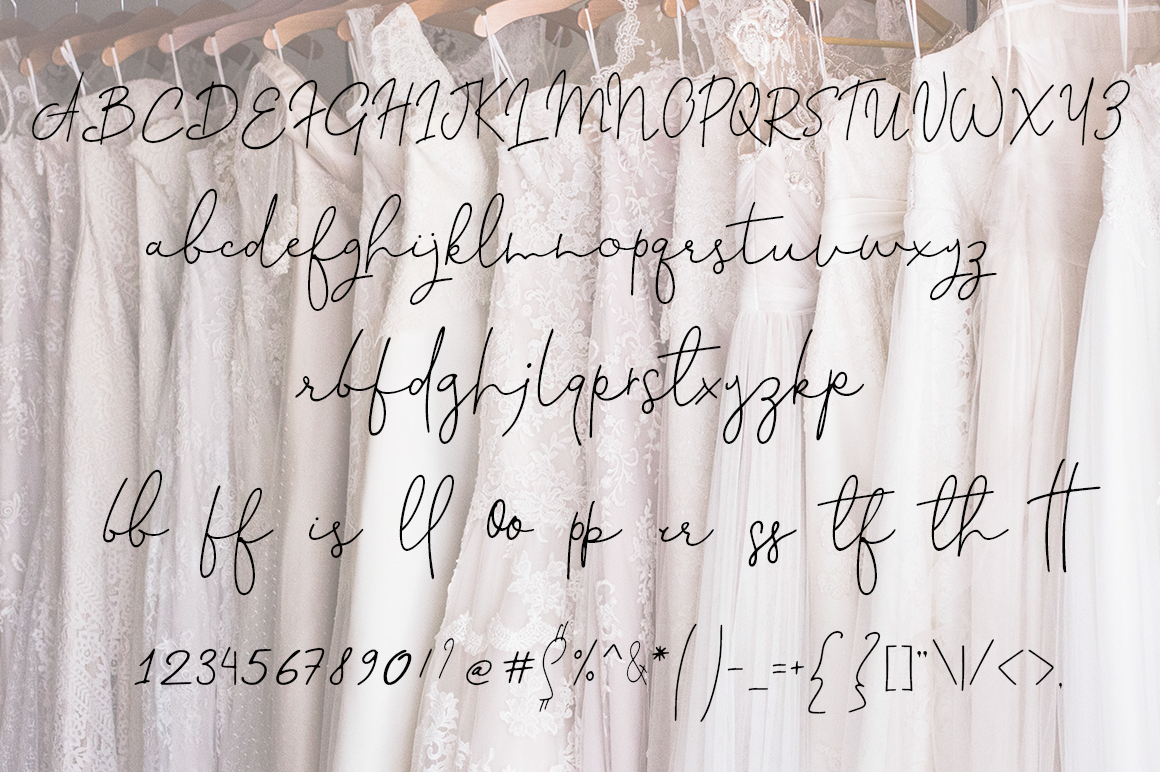 ABCDEFGHIJKLMNOPQRSTUVWXYZ
abcdefghijklmnopqrstuvwxyz
rbfdghjlqprstxyzkp
bb ff is ll Oo pp rr ss tf th tt
1234567890!? @#$%^&*()-_=+{}[]"\|/<>.